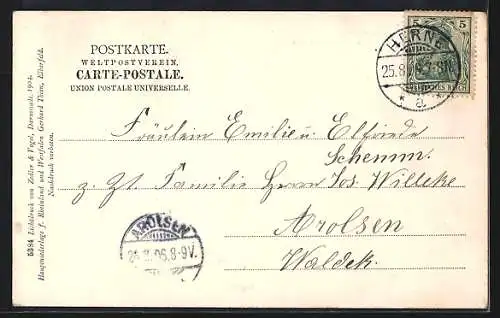 POSTKARTE.
WELTPOSTVEREIN.
CARTE-POSTALE.
UNION POSTALE UNIVERSELLE.
5 5
HERNE
25.8.
a.
Fräulein Emilie u. Elfriede
Schemm.
z. Zt. Familie Herrn Jos. Willeke
Arolsen
Waldek.
AROLSEN
26.8.06.8-9V.
5384 Lichtdruck von Zedler & Vogel, Darmstadt. 1904.
Hauptniederlage f. Rheinland und Westfalen Gerhard Thien, Elberfeld.
Nachdruck verboten.